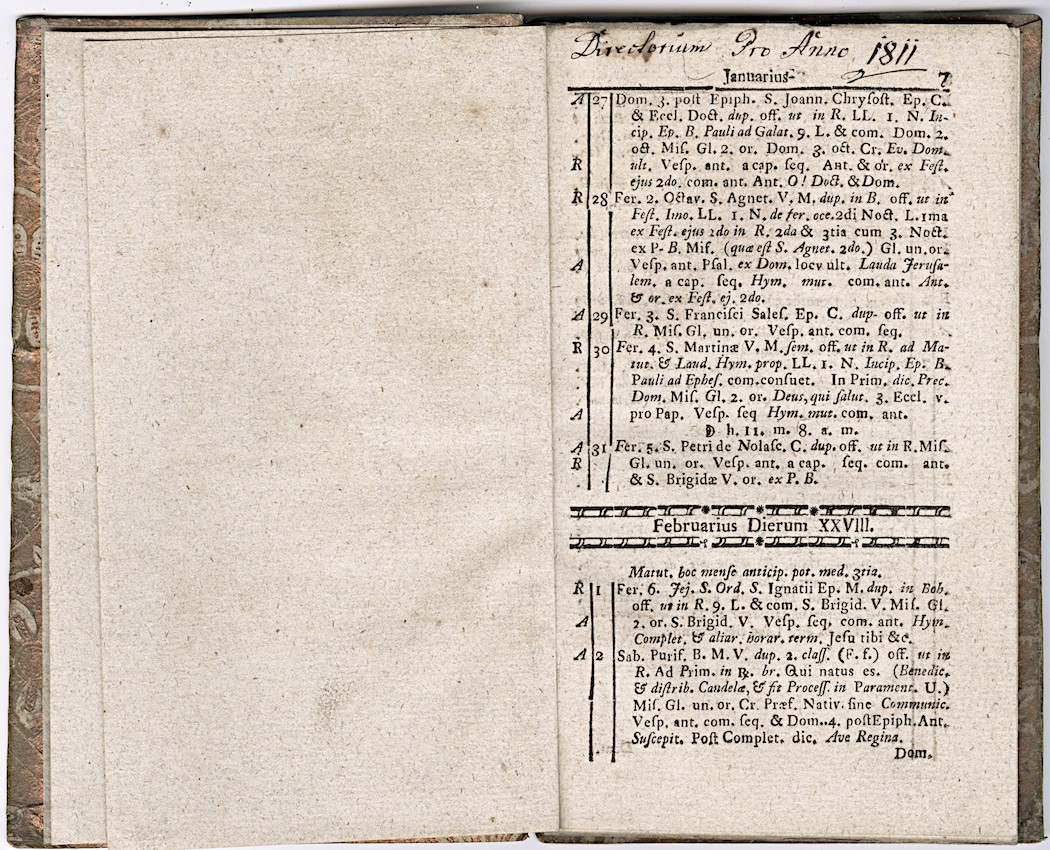 Directorium Pro Anno 1811
Januarius- 7
A 27 Dom. 3. poſt Epiph. S. Joann. Chryſoſt. Ep. C.
& Eccl. Doct. dup. off. ut in R. LL. 1. N. In-
cip. Ep. B. Pauli ad Galat. 9. L. & com. Dom. 2.
oct. Miſ. Gl. 2. or. Dom. 3. oct. Cr. Ev. Dom.
R ult. Veſp. ant. a cap. ſeq. Ant. & or. ex Feſt.
ejus 2do. com. ant. Ant. O! Doct. & Dom.
R 28 Fer. 2. Octav. S. Agnet. V. M. dup. in B. off. ut in
Feſt. Imo. LL. 1. N. de fer. occ. 2di Noct. L. 1ma
ex Feſt. ejus 2do in R. 2da & 3tia cum 3. Noct.
ex P- B. Miſ. (quæ eſt S. Agnet. 2do.) Gl. un. or.
A Veſp. ant. Pſal. ex Dom. locv ult. Lauda Jeruſa-
lem. a cap. ſeq. Hym. mut. com. ant. Ant.
& or. ex Feſt. ej. 2do.
A 29 Fer. 3. S. Franciſci Saleſ. Ep. C. dup- off. ut in
R. Miſ. Gl. un. or. Veſp. ant. com. ſeq.
R 30 Fer. 4. S. Martinæ V. M. ſem. off. ut in R. ad Ma-
tut. & Laud. Hym. prop. LL. 1. N. Incip. Ep. B.
Pauli ad Epheſ. com. conſuet. In Prim. dic. Prec.
Dom. Miſ. Gl. 2. or. Deus, qui ſalut. 3. Eccl. v.
A pro Pap. Veſp. ſeq Hym. mut. com. ant.
☽ h. 11. m. 8. a. m.
A 31 Fer. 5. S. Petri de Nolaſc. C. dup. off. ut in R. Miſ.
R Gl. un. or. Veſp. ant. a cap. ſeq. com. ant.
& S. Brigidæ V. or. ex P. B.
Februarius Dierum XXVIII.
Matut. hoc menſe anticip. pot. med. 3tia.
R 1 Fer. 6. Jej. S. Ord. S. Ignatii Ep. M. dup. in Boh.
off. ut in R. 9. L. & com. S. Brigid. V. Miſ. Gl.
A 2. or. S. Brigid. V. Veſp. ſeq. com. ant. Hym.
Complet. & aliar. horar. term. Jeſu tibi &c.
A 2 Sab. Purif. B. M. V. dup. 2. claſſ. (F. f.) off. ut in
R. Ad Prim. in ℞. br. Qui natus es. (Benedic.
& diſtrib. Candelæ, & fit Proceſſ. in Parament. U.)
Miſ. Gl. un. or. Cr. Præf. Nativ. ſine Communic.
Veſp. ant. com. ſeq. & Dom.. 4. poſt Epiph. Ant.
Suſcepit. Poſt Complet. dic. Ave Regina.
Dom.